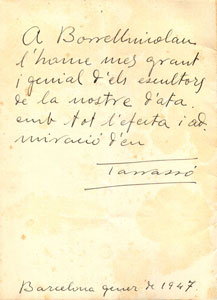 A Borrellnicolau
l'home mes grant
i genial d'els escultors
de la nostre d'ata.
emb tot l'efecte i ad
miració d'en
Tarrassó
Barcelona gener de 1947.